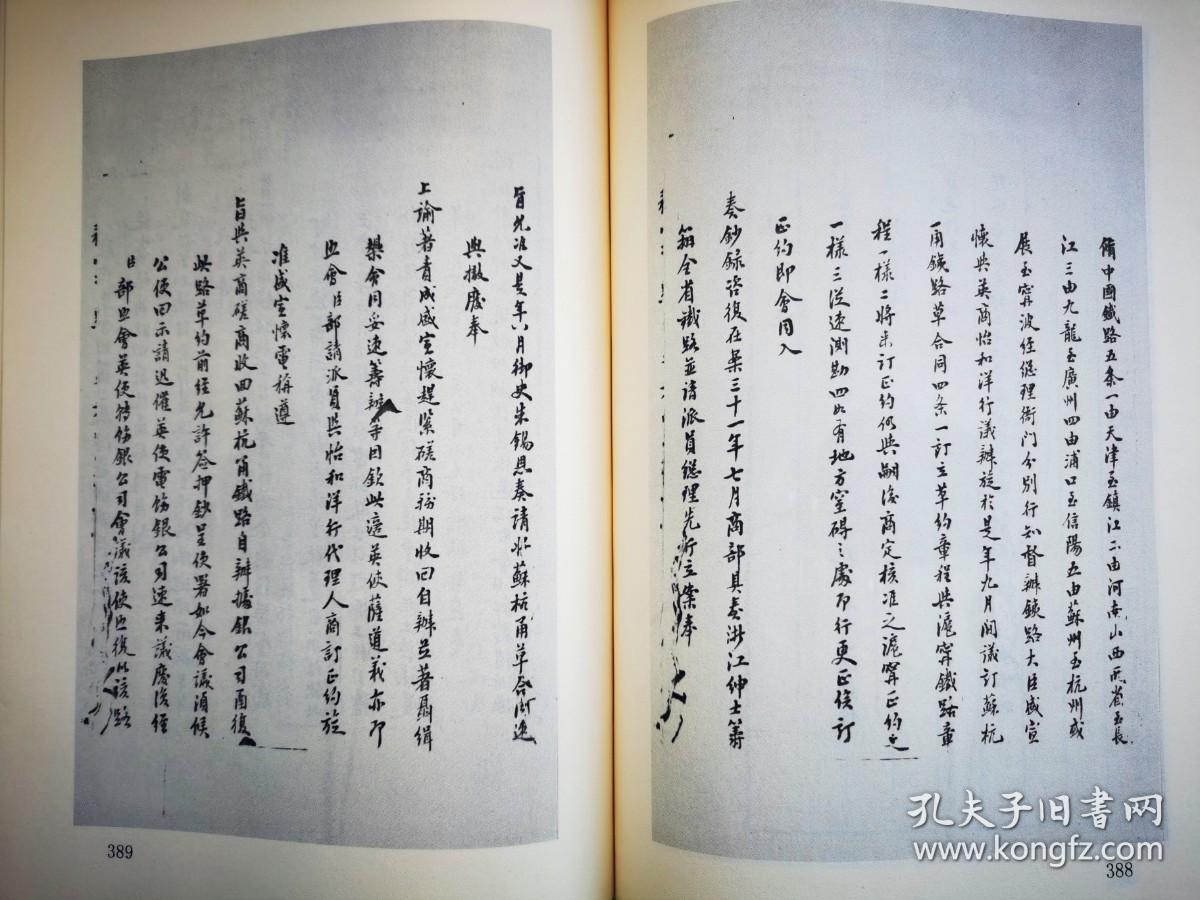 備中國鐵路五条一由天津至鎮江二由河南山西兩省至長
江三由九龍至廣州四由浦口至信陽五由蘇州至杭州或
展至甯波经總理衙門分别行知督辦鉄路大臣盛宣
懷與英商怡和洋行議辦旋於是年九月間議訂蘇杭
甬鉄路草合同四条一訂立草约章程與滬甯鐵路章
程一樣二將来訂正约仍與嗣後商定核准之滬甯正约之
一樣三從速測勘四如有地方窒碍之處即行更正俟訂
正约即會同入
奏鈔錄咨復在案三十一年七月商部具奏浙江紳士籌
辦全省鐵路並請派員總理先行立案奉
旨允准又是年八月御史朱錫恩奏請將蘇杭甬草合同迅
與撤廢奉
上諭著責成盛宣懷趕緊磋商務期收回自辦並著聶緝
椝會同妥速籌辦等因欽此適英使薩道義亦即
照會臣部請派員與怡和洋行代理人商訂正约旋
准盛宣懷電稱遵
旨與英商磋商收回蘇杭甬鐵路自辦據銀公司函復
此路草约前经允許签押鈔呈使署如今會議湏候
公使回示請迅催英使電飭銀公司速来議廢後经
臣部照會英使轉飭銀公司會議該使照復以該路
389
388
孔夫子旧书网
www.kongfz.com